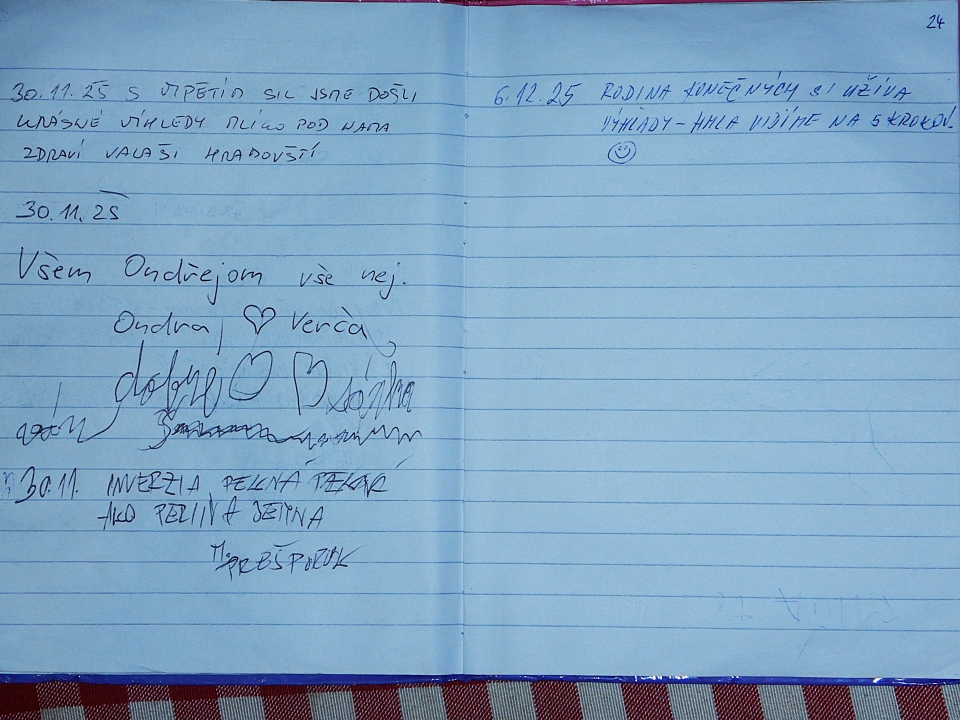 30.11.25 S VYPĚTÍM SIL JSME DOŠLI
KRÁSNÉ VÝHLEDY MLÍKO POD NAMA
ZDRAVÍ VALAŠI HRADOVŠTÍ
30.11.25
Všem Ondřejom vše nej.
Ondra, ♡ Verča
dobrý ♡ ♡
30.11. INVERZIA PEKNÁ PEKNÁ
AKO PERINA JEMNA
M. PREŠPOROK
24
6.12.25 RODINA KONEČNÝCH SI UŽÍVA
VÝHLADY - HMLA VIDÍME NA 5 KROKOV.
☺